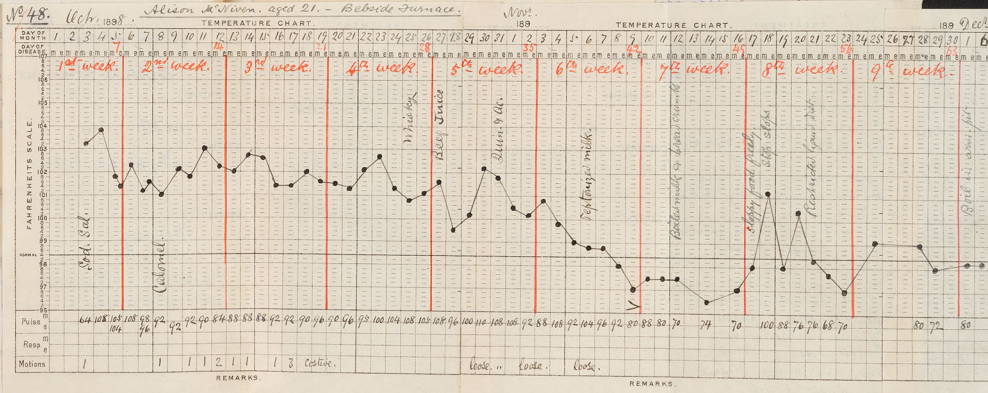 No. 48. Oct. 1898. Alison McNiven. aged 21. - Bebside Furnace. Nov. 189 189 Dec.
TEMPERATURE CHART. TEMPERATURE CHART.
DAY OF MONTH 1 2 3 4 5 6 7 8 9 10 11 12 13 14 15 16 17 18 19 20 21 22 23 24 25 26 27 28 29 30 31 1 2 3 4 5 6 7 8 9 10 11 12 13 14 15 16 17 18 19 20 21 22 23 24 25 26 27 28 29 30 1
DAY OF DISEASE 7 14 21 28 35 42 49 56 63
1st week. 2nd week. 3rd week. 4th week. 5th week. 6th week. 7th week. 8th week. 9th week.
FAHRENHEIT'S SCALE.
NORMAL
Sod. Sal.
Calomel.
Whisky
Beef Juice
Quin. & Ac.
Peptonized milk.
Boiled milk & bread crumbs
Sloppy food freely
Stop slops
Restricted liquid diet.
Boil in arm-pit
Pulse 64 108 105 108 98 92 92 92 90 84 88 88 88 92 92 90 96 90 96 98 100 104 108 108 108 96 100 110 108 108 92 88 108 92 104 96 92 80 88 80 70 74 70 100 88 76 76 68 70 80 72 80
104 96
Resp.
Motions 1 1 1 1 2 1 1 1 3 costive. loose. " loose. loose.
REMARKS. REMARKS.